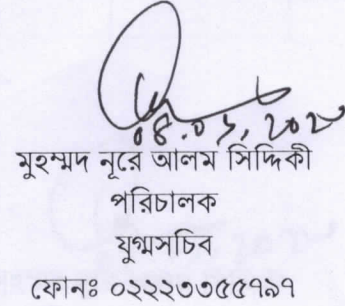 মুহম্মদ নূরে আলম সিদ্দিকী
পরিচালক
যুগ্মসচিব
ফোনঃ ০২২২৩৩৫৫৭৯৭